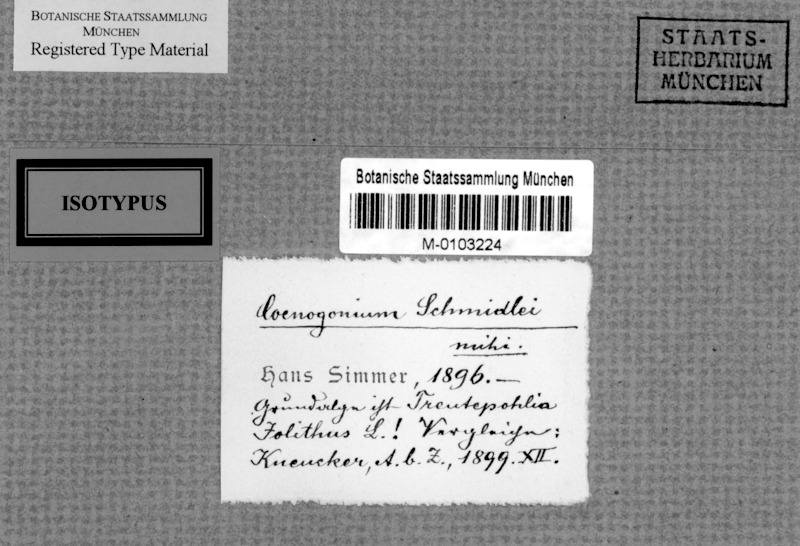 BOTANISCHE STAATSSAMMLUNG
MÜNCHEN
Registered Type Material
STAATS-
HERBARIUM
MÜNCHEN
ISOTYPUS
Botanische Staatssammlung München
M-0103224
Coenogonium Schmidlei
mihi.
Hans Simmer, 1896.—
Grundalge ist Trentepohlia
Jolithus L.! Vergleiche:
Kneucker, A. b. Z., 1899. XII.